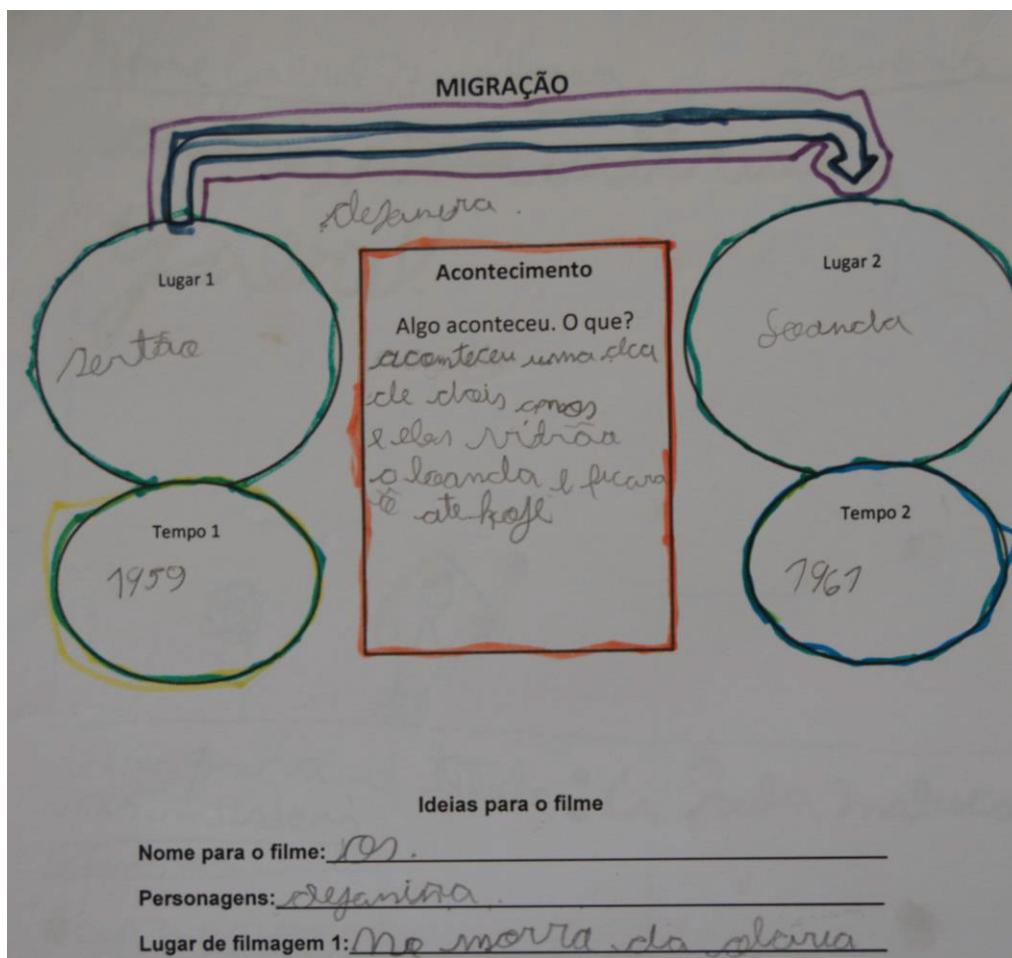 MIGRAÇÃO
dejanira.
Lugar 1
sertão
Acontecimento
Algo aconteceu. O que?
aconteceu uma
de dois anos
e eles
o loanda e ficara
õ ate hoje
Lugar 2
Loanda
Tempo 1
1959
Tempo 2
1961
Ideias para o filme
Nome para o filme:
Personagens: dejanira
Lugar de filmagem 1: No morra da olaria